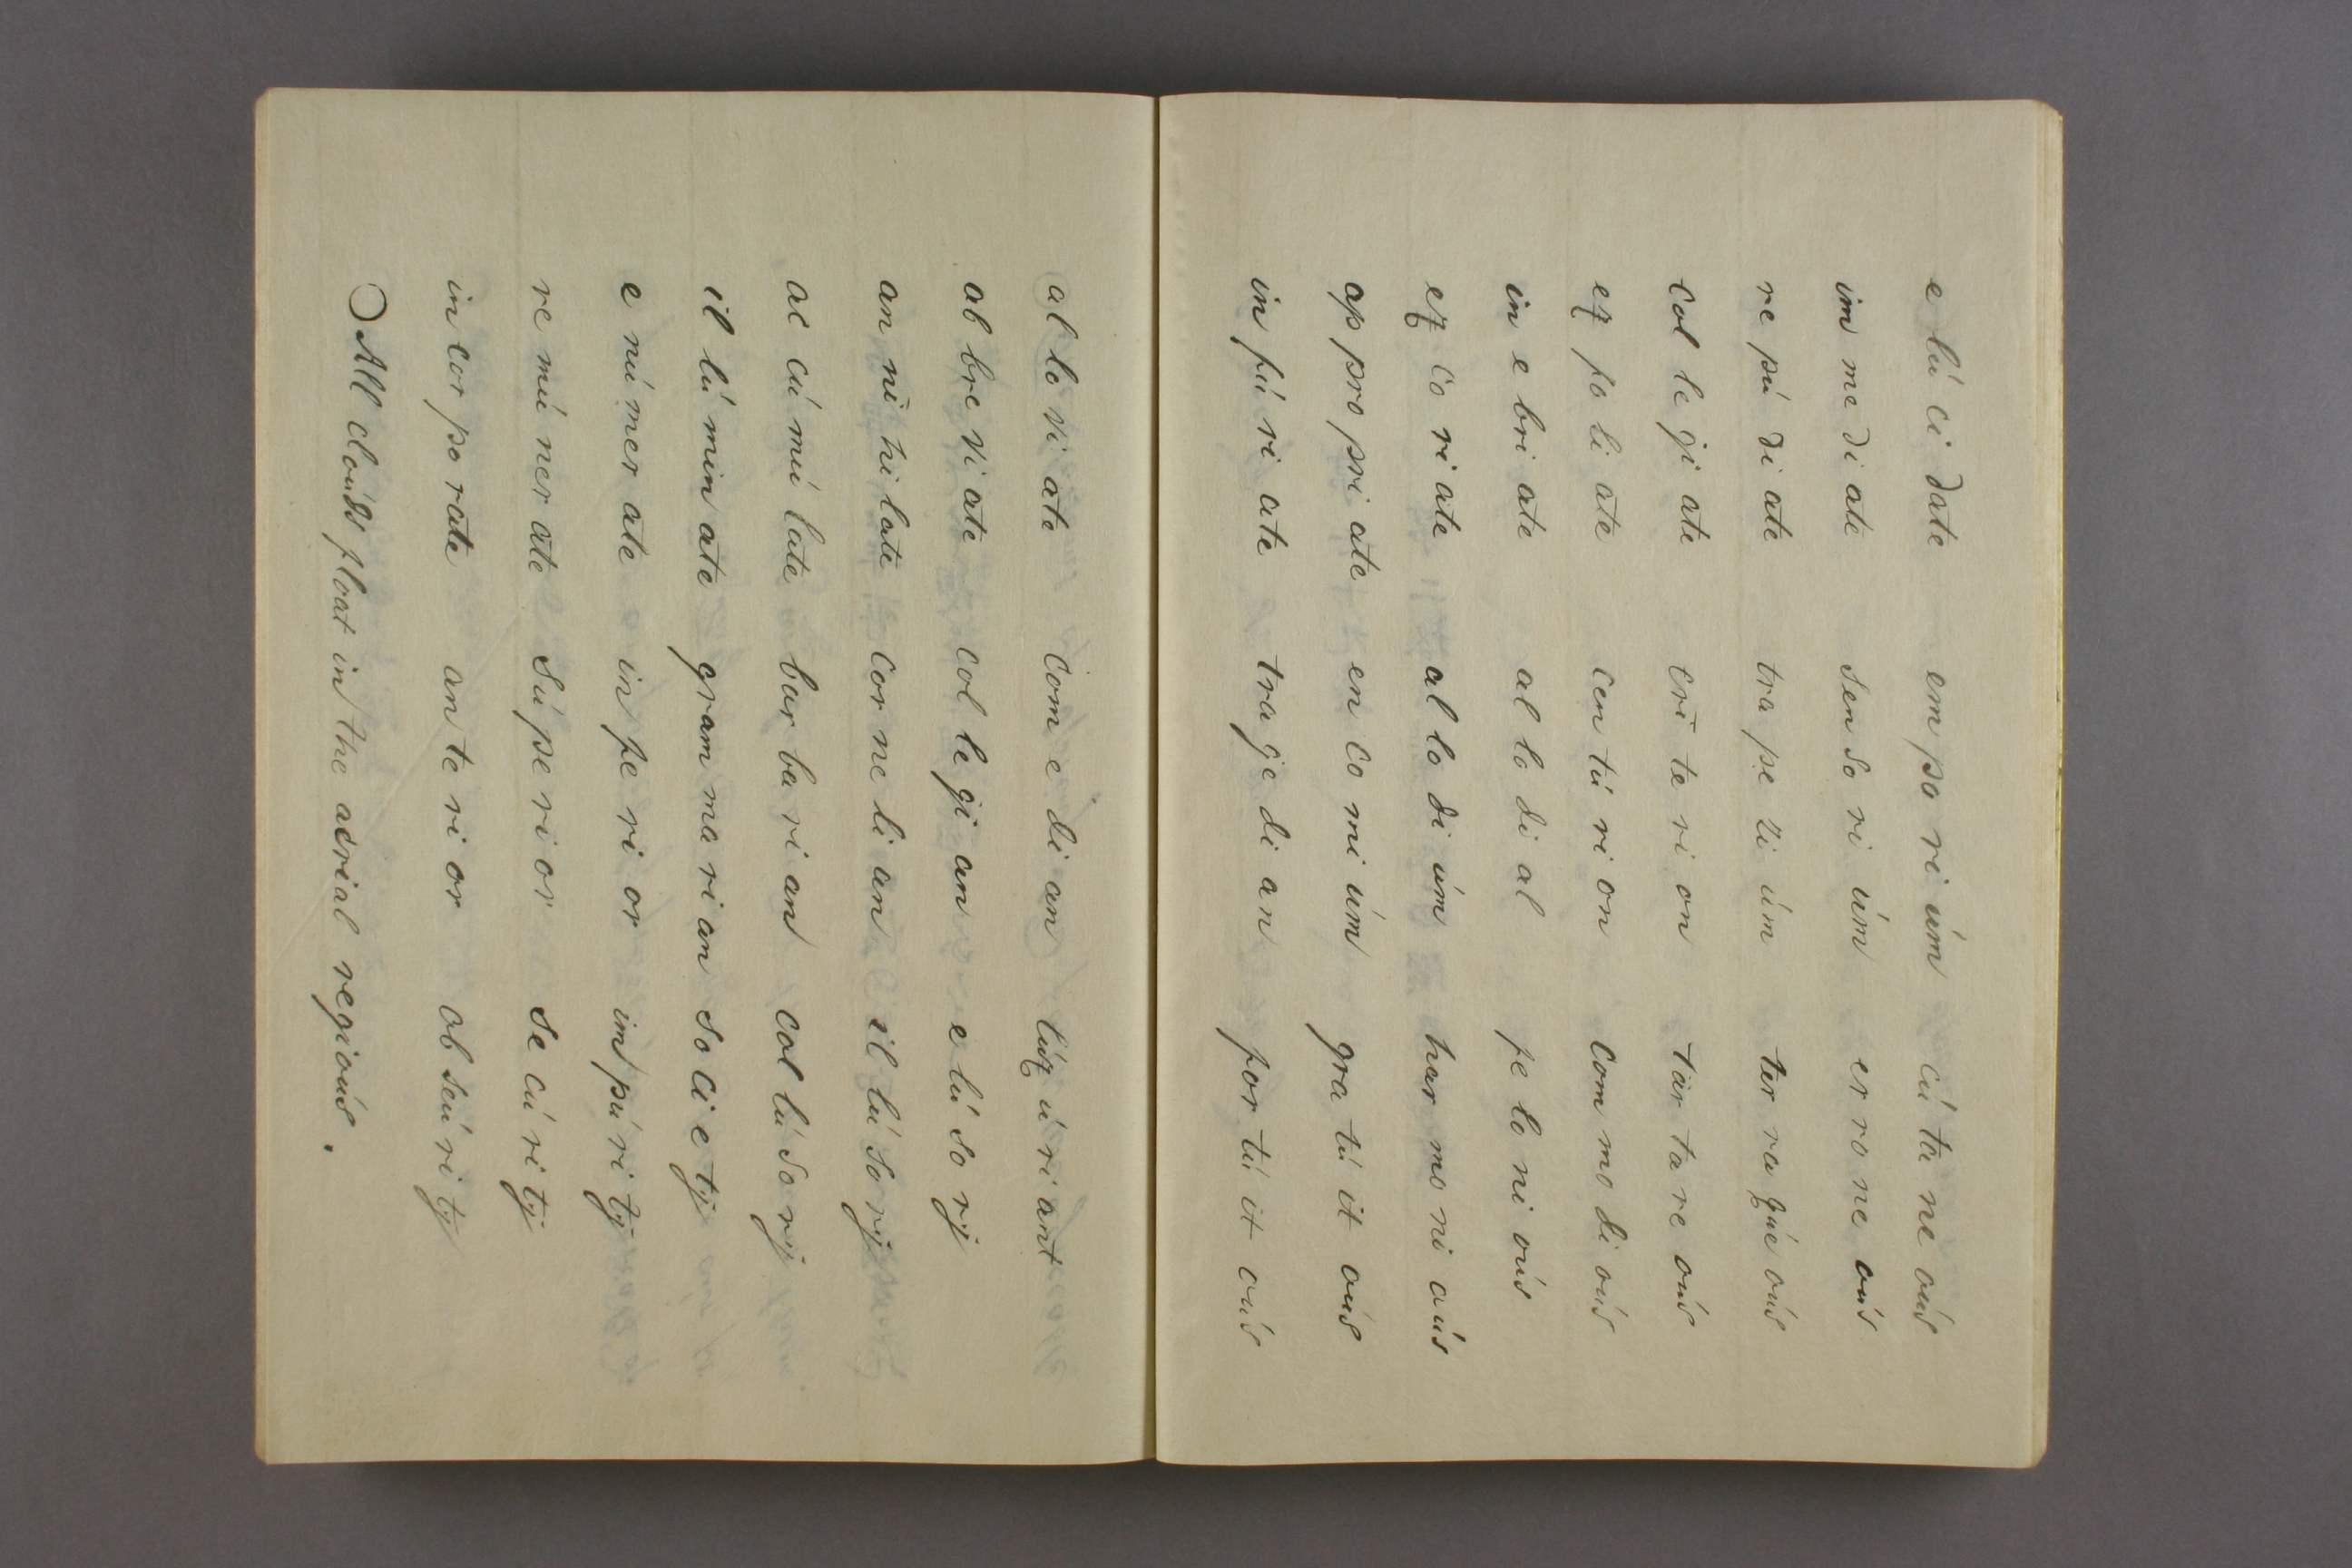 e lú ci date em po ri úm cú ta ne oús
im me di ate sen so ri úm er ro ne oús
re pú di ate tra pe zi úm ter ra qúe oús
col le gi ate cri te ri on tar ta re oús
ex fo li ate cen tú ri on com mo di oús
in e bri ate al lo di al fe lo ni oús
ex co ri ate al lo di úm har mo ni oús
ap pro pri ate en co mi úm gra tú it oús
in fú ri ate tra ge di an for tú it oús
al le vi ate com e di an lúx ú ri ant
ab bre vi ate col le gi an e lú so ry
an ni hi late cor ne li an il lú so ry
ac cú mú late bar ba ri an col lú so ry
il lú min ate gram ma ri an so ci e ty
e nú mer ate in fe ri or im pú ri ty
re mú ner ate sú pe ri or se cú ri ty
in cor po rate an te ri or ob scú ri ty
All cloúds float in the aerial regioús.